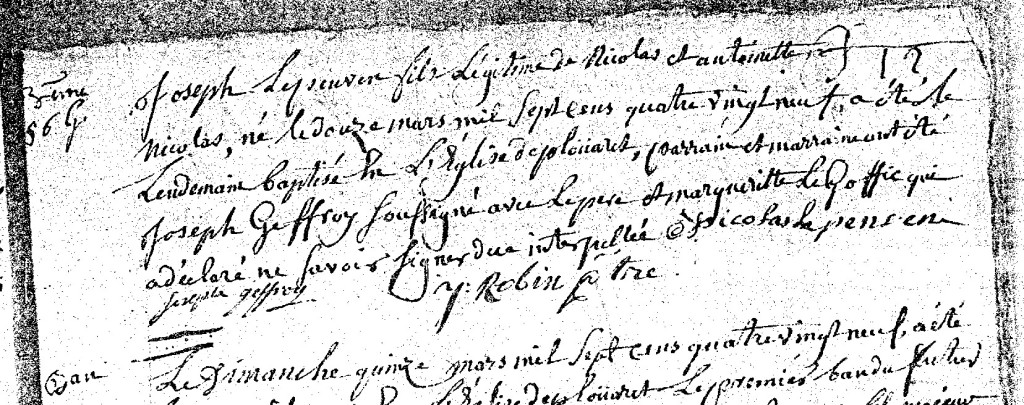 12
3eme 56 Joseph Lepenven fils Légitime de Nicolas et antoinette
Nicolas, né le douze mars mil sept cens quatre vingt neuf, a été le
Lendemain baptisé En L'Église de plouaret, parrain et marraine ont été
Joseph Geffroy soussigné avec le pere et margueritte Le Goffic qui
a déclaré ne savoir signer due interpellée Nicolas Le penven
joseph geffroy
y. Robin ptre
Ban Le Dimanche quinze mars mil sept cens quatre vingt neuf, a été
L'Église de plouaret Le premier ban du futur